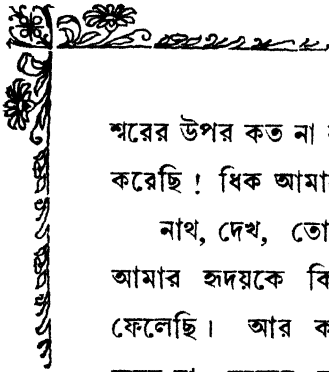 শ্বরের উপর কত না
করেছি! ধিক আমা
নাথ, দেখ, তো
আমার হৃদয়কে বি
ফেলেছি। আর ক